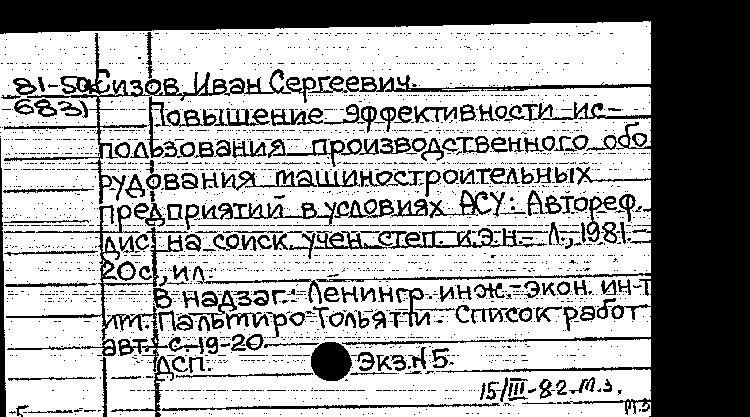 81-50 Сизов, Иван Сергеевич.
6831 Повышение эффективности ис-
пользования производственного обо
рудования машиностроительных
предприятий в условиях АСУ: Автореф.
дис. на соиск. учен. степ. к.э.н.- Л., 1981.-
20с., ил.
В надзаг.: Ленингр. инж.-экон. ин-т
им. Пальмиро Тольятти. Список работ
авт.: с.19-20.
ДСП. Экз.№5.
15/III-82.м.з.